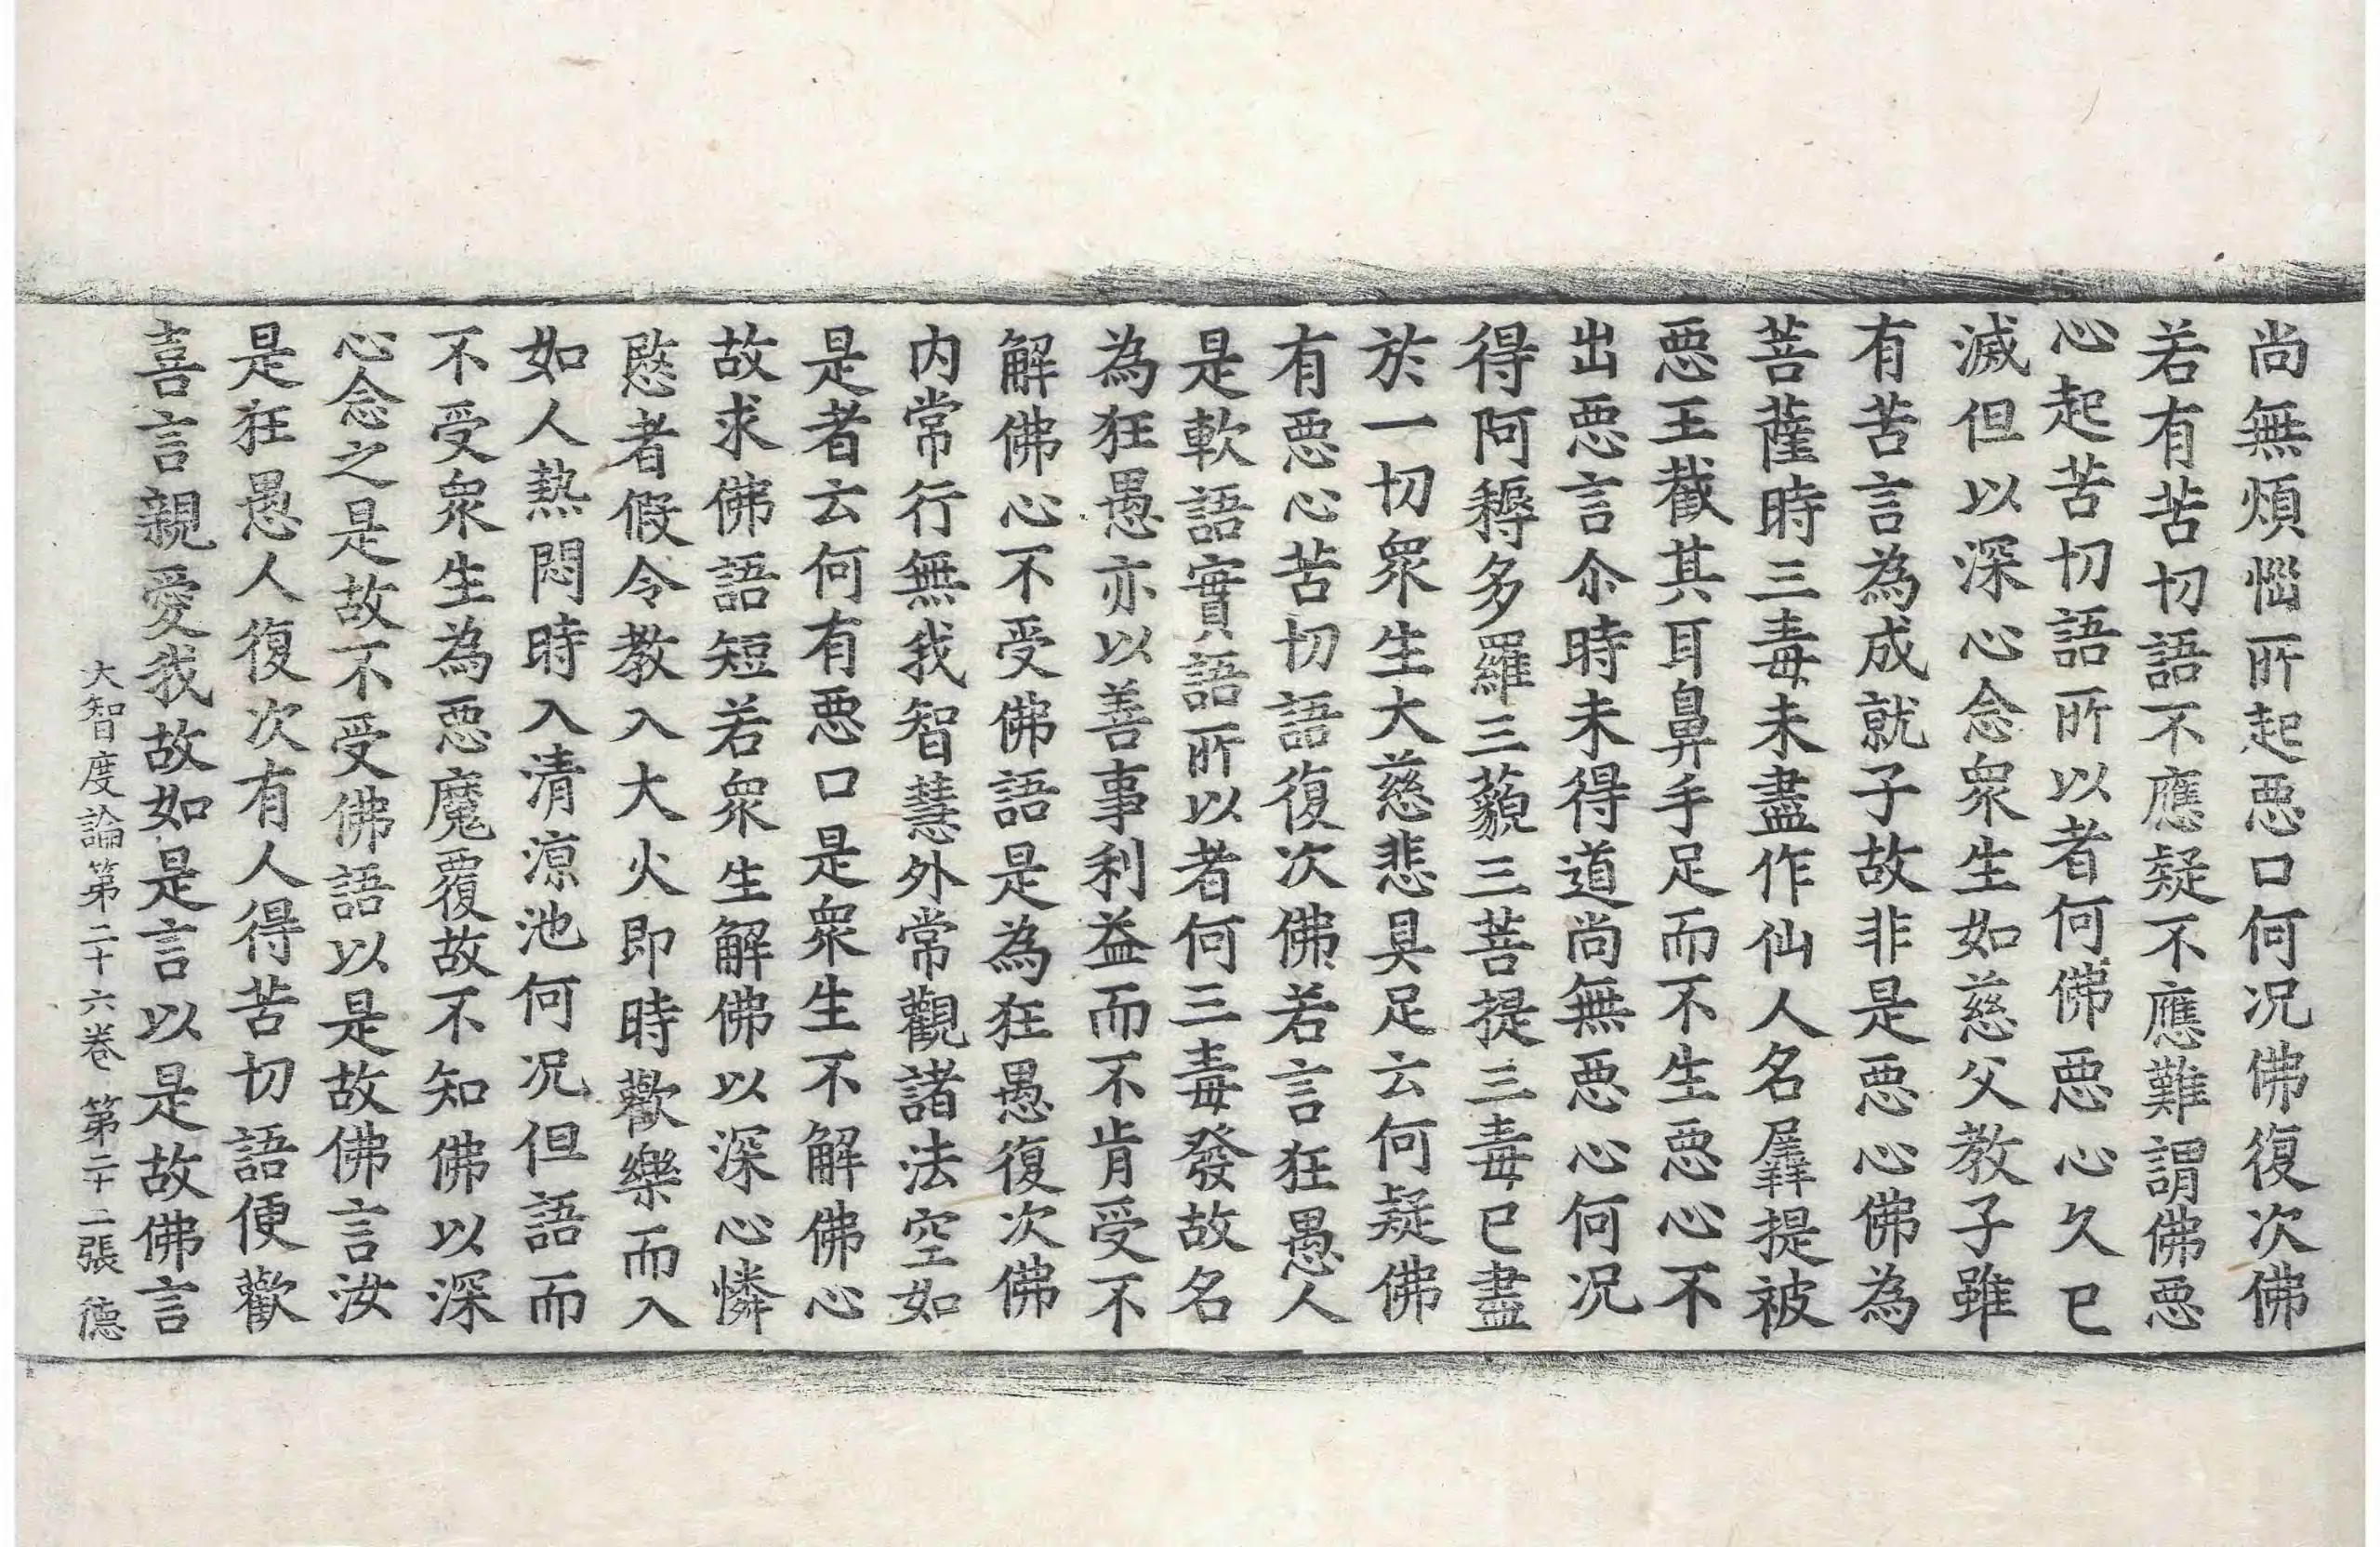 尚無煩惱所起惡口何况佛復次佛
若有苦切語不應疑不應難謂佛惡
心起苦切語所以者何佛惡心久已
滅但以深心念衆生如慈父教子雖
有苦言為成就子故非是惡心佛為
菩薩時三毒未盡作仙人名羼提被
惡王截其耳鼻手足而不生惡心不
出惡言尒時未得道尚無惡心何况
得阿耨多羅三藐三菩提三毒已盡
於一切衆生大慈悲具足云何疑佛
有惡心苦切語復次佛若言狂愚人
是軟語實語所以者何三毒發故名
為狂愚亦以善事利益而不肯受不
解佛心不受佛語是為狂愚復次佛
内常行無我智慧外常觀諸法空如
是者云何有惡口是衆生不解佛心
故求佛語短若衆生解佛以深心憐
愍者假令教入大火即時歡樂而入
如人熱悶時入清凉池何况但語而
不受衆生為惡魔覆故不知佛以深
心念之是故不受佛語以是故佛言汝
是狂愚人復次有人得苦切語便歡
喜言親愛我故如是言以是故佛言
大智度論第二十六卷 第二十二張 德